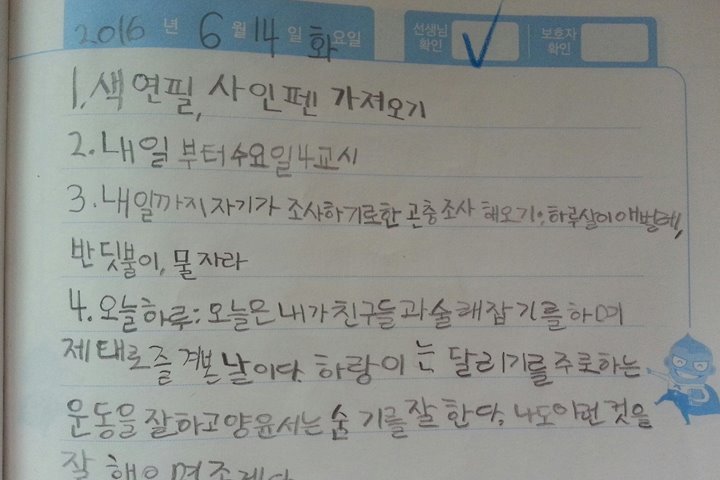 2016 년 6 월 14 일 화 요일 선생님 확인 보호자 확인
1. 색연필, 사인펜 가져오기
2. 내일부터 수요일 4교시
3. 내일까지 자기가 조사하기로한 곤충조사 해오기: 하루살이 애벌레,
반딧불이, 물자라
4. 오늘하루: 오늘은 내가 친구들과 술래잡기를 하며
제태로 즐겨본 날이다. 하랑이는 달리기를 주로하는
운동을 잘하고 양윤서는 숨기를 잘한다. 나도 이런 것을
잘 했으면 좋겠다